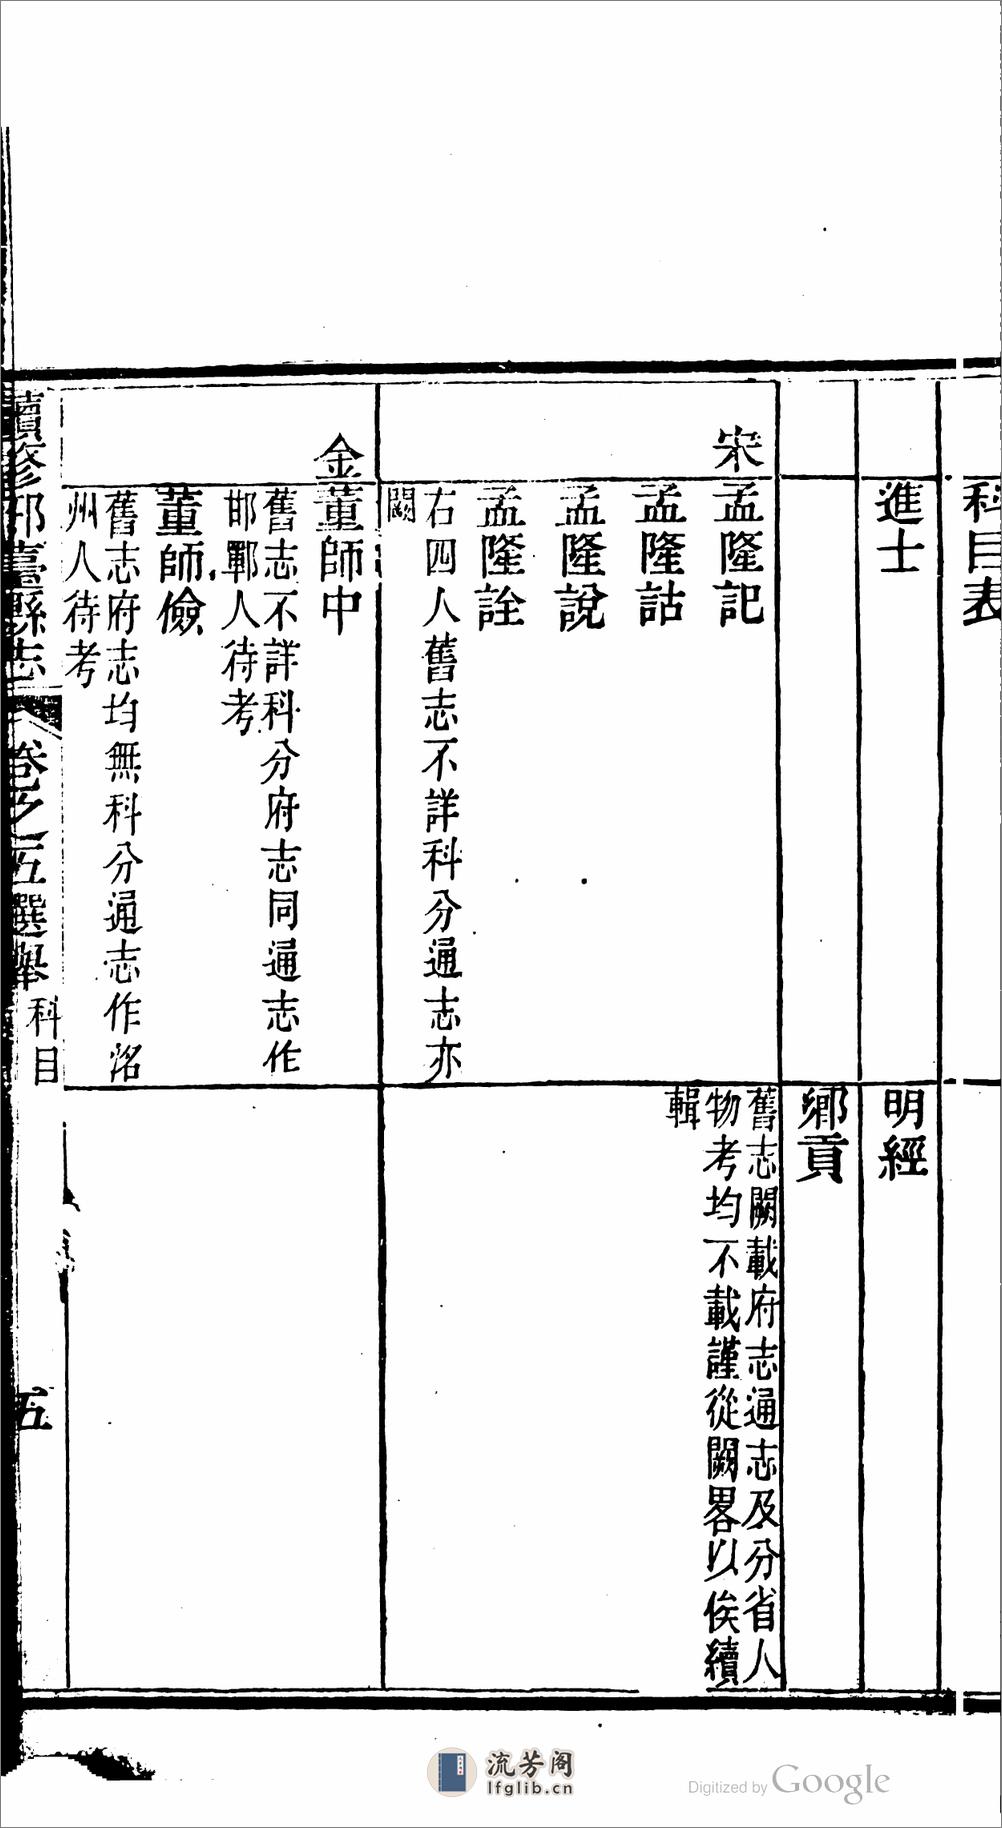 科目表
進士
明經
鄉貢
宋
孟隆記
孟隆詁
孟隆說
孟隆詮
右四人舊志不詳科分通志亦
闕
舊志闕載府志通志及分省人
物考均不載謹從闕畧以俟續
輯
金
董師中
舊志不詳科分府志同通志作
邯鄲人待考
董師儉
舊志府志均無科分通志作洺
州人待考
續修邢臺縣志
卷之五選舉
科目
五
流芳阁
lfglib.cn
Digitized by Google